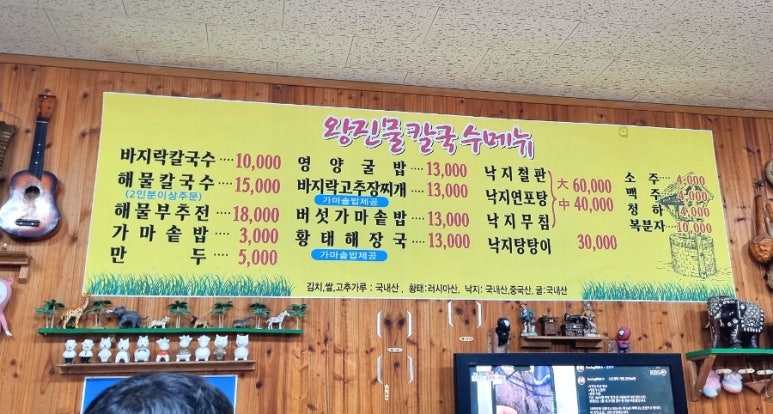 왕진물칼국수메뉴
바지락칼국수 ···· 10,000
해물칼국수 ···· 15,000
(2인분이상주문)
해물부추전 ···· 18,000
가마솥밥 ···· 3,000
만두 ···· 5,000
영양굴밥 ···· 13,000
바지락고추장찌개 ···· 13,000
가마솥밥제공
버섯가마솥밥 ···· 13,000
황태해장국 ···· 13,000
가마솥밥제공
낙지철판
낙지연포탕
낙지무침
大 60,000
中 40,000
낙지탕탕이 30,000
소주 ···· 4,000
맥주 ···· 4,000
청하 ···· 4,000
복분자 ···· 10,000
김치,쌀,고추가루 : 국내산, 황태:러시아산, 낙지: 국내산,중국산, 굴:국내산
KBS